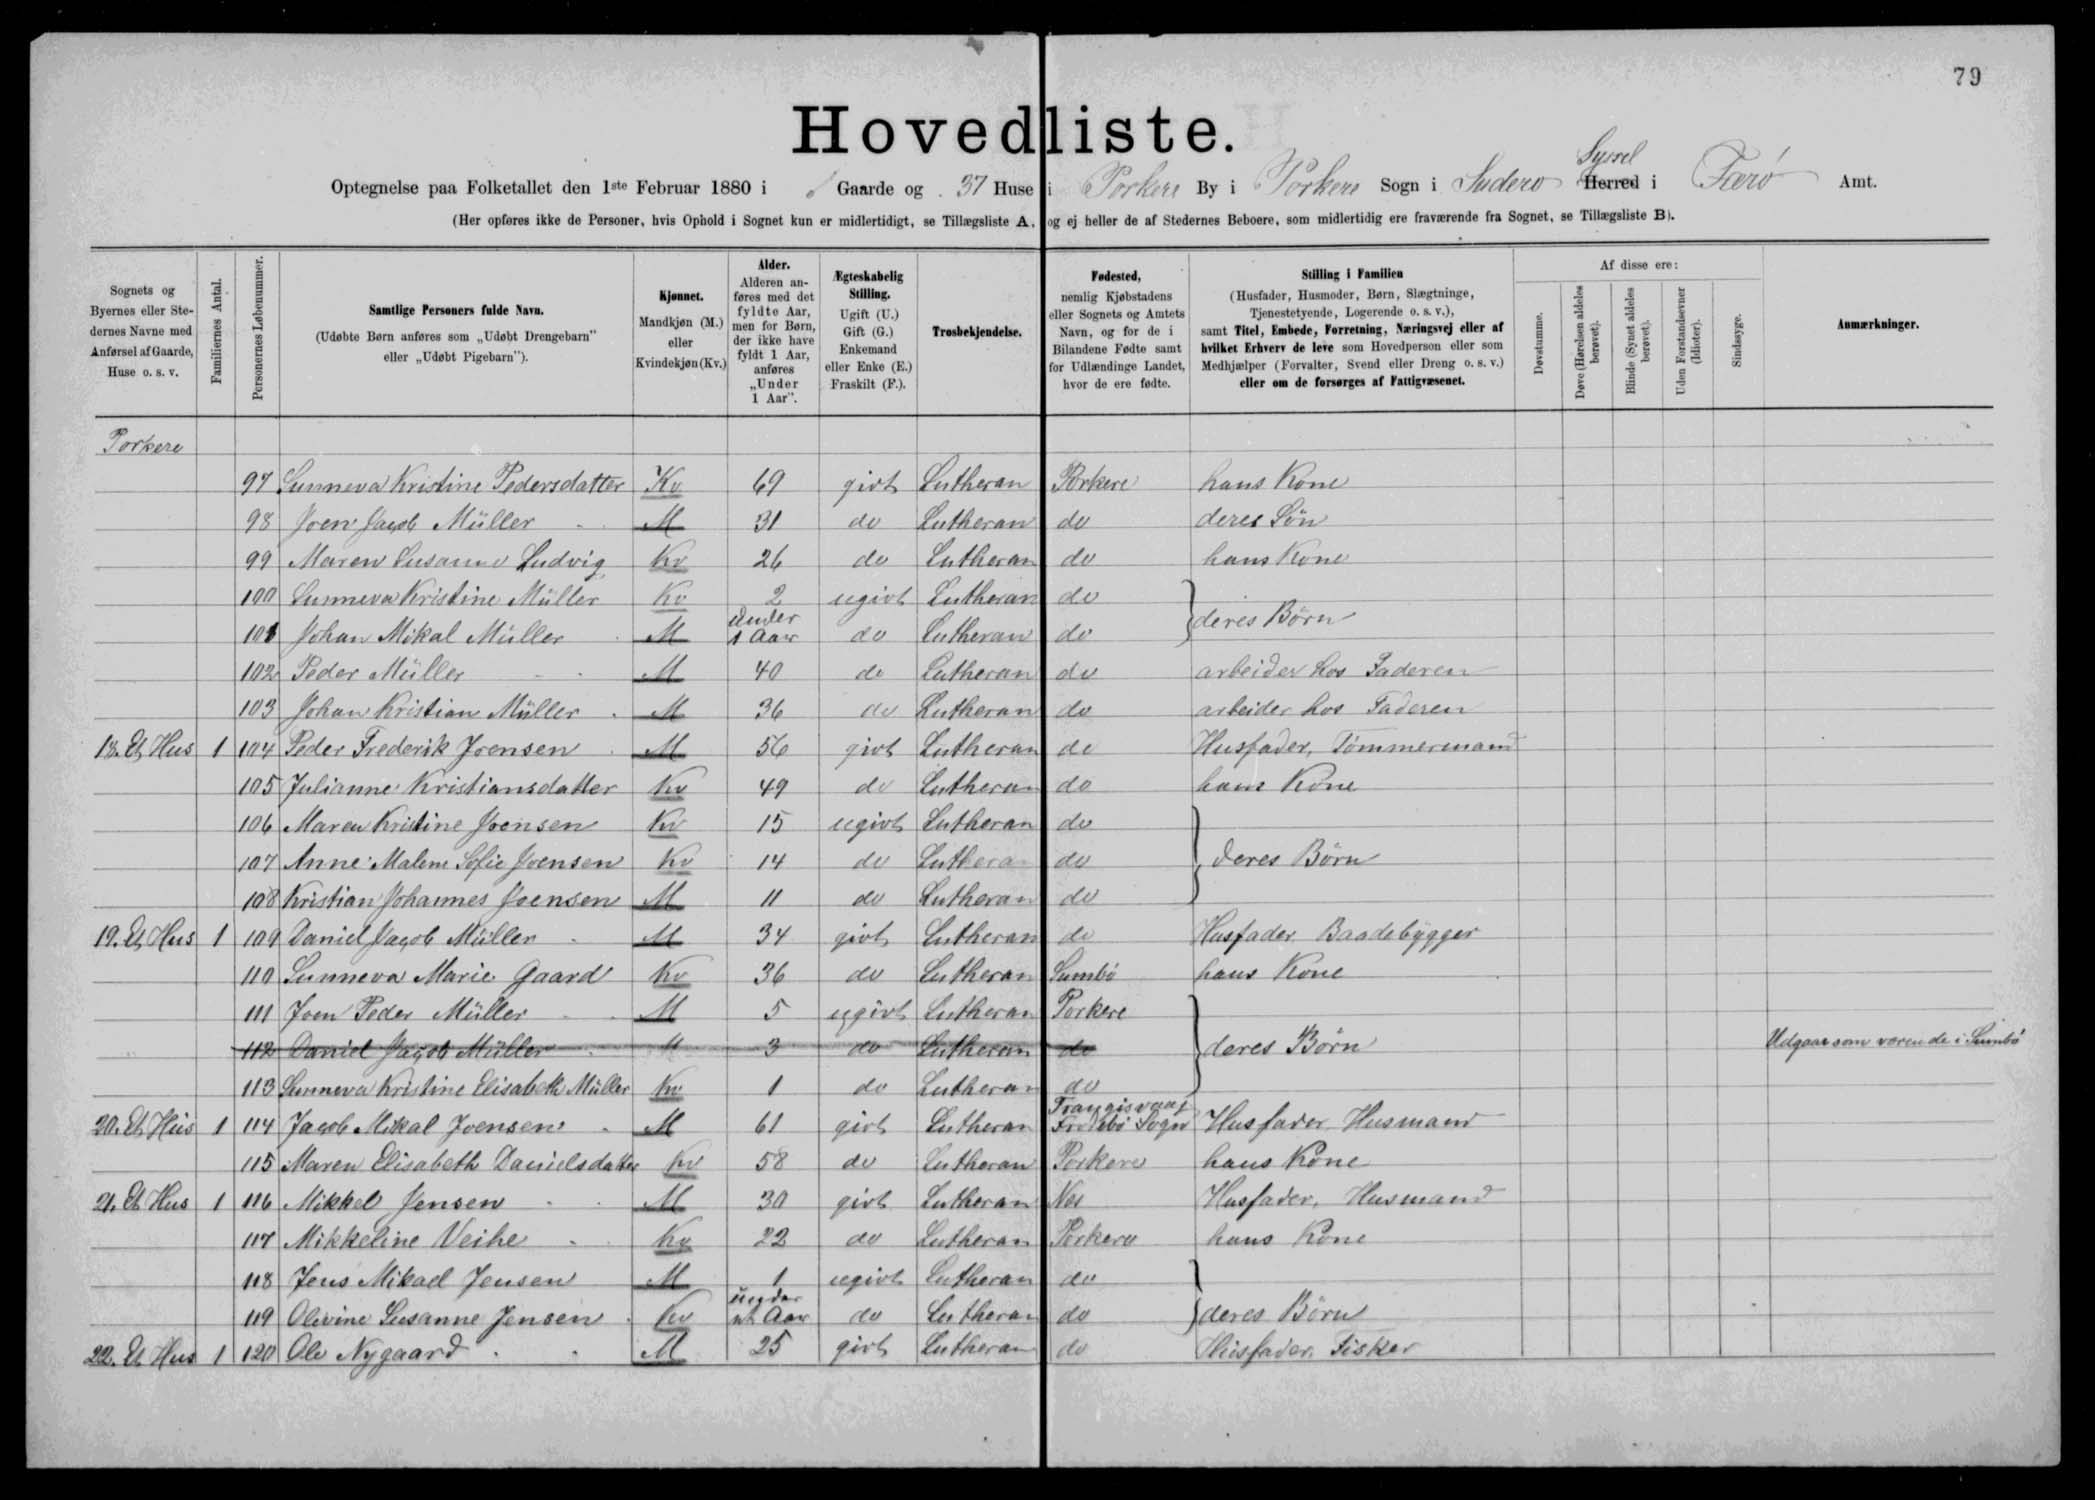 79
Hovedliste.
Optegnelse paa Folketallet den 1ste Februar 1880 i Gaarde og 37 Huse i Porkere By i Porkere Sogn i Suderø Syssel Herred i Færø Amt.
(Her opføres ikke de Personer, hvis Ophold i Sognet kun er midlertidigt, se Tillægsliste A, og ej heller de af Stedernes Beboere, som midlertidig ere fraværende fra Sognet, se Tillægsliste B).
Sognets og Byernes eller Stedernes Navne med Anførsel af Gaarde, Huse o. s. v.
Familiernes Antal.
Personernes Løbenummer.
Samtlige Personers fulde Navn.
(Udøbte Børn anføres som „Udøbt Drengebarn" eller „Udøbt Pigebarn").
Kjønnet.
Mandkjøn (M.) eller Kvindekjøn (Kv.)
Alder.
Alderen anføres med det fyldte Aar, men for Børn, der ikke have fyldt 1 Aar, anføres „Under 1 Aar".
Ægteskabelig Stilling.
Ugift (U.) Gift (G.) Enkemand eller Enke (E.) Fraskilt (F.).
Trosbekjendelse.
Fødested,
nemlig Kjøbstadens eller Sognets og Amtets Navn, og for de i Bilandene Fødte samt for Udlændinge Landet, hvor de ere fødte.
Stilling i Familien
(Husfader, Husmoder, Børn, Slægtninge, Tjenestetyende, Logerende o. s. v.), samt Titel, Embede, Forretning, Næringsvej eller af hvilket Erhverv de leve som Hovedperson eller som Medhjælper (Forvalter, Svend eller Dreng o. s. v.) eller om de forsørges af Fattigvæsenet.
Af disse ere:
Døvstumme.
Døve (Hørelsen aldeles berøvet).
Blinde (Synet aldeles berøvet).
Uden Forstandsevner (Idioter).
Sindssyge.
Anmærkninger.
Porkere
97 Sunneva Kristine Pedersdatter Kv 69 givt Lutheran Porkere hans Kone
98 Joen Jacob Müller M 31 do Lutheran do deres Sön
99 Maren Susanne Ludvig Kv 26 do Lutheran do hans Kone
100 Sunneva Kristine Müller Kv 2 ugivt Lutheran do
101 Johan Mikal Müller M under 1 Aar do Lutheran do deres Börn
102 Peder Müller M 40 do Lutheran do arbeider hos Faderen
103 Johan Kristian Müller M 36 do Lutheran do arbeider hos Faderen
18. Et Hus 1 104 Peder Frederik Joensen M 56 givt Lutheran do Husfader, Tömmermand
105 Julianne Kristiansdatter Kv 49 do Lutheran do hans Kone
106 Maren Kristine Joensen Kv 15 ugivt Lutheran do
107 Anne Malene Sofie Joensen Kv 14 do Lutheran do deres Börn
108 Kristian Johannes Joensen M 11 do Lutheran do
19. Et Hus 1 109 Daniel Jacob Müller M 34 givt Lutheran do Husfader Baadebygger
110 Sunneva Marie Gaard Kv 36 do Lutheran Sumbö hans Kone
111 Joen Peder Müller M 5 ugivt Lutheran Porkere
112 Daniel Jacob Müller M 3 do Lutheran do deres Börn Udgaar som værende i Sumbö
113 Sunneva Kristine Elisabeth Müller Kv 1 do Lutheran do
20. Et Hus 1 114 Jacob Mikal Joensen M 61 givt Lutheran Frangisvaag Frodebö Sogn Husfader Husmand
115 Maren Elisabeth Danielsdatter Kv 58 do Lutheran Porkere hans Kone
21. Et Hus 1 116 Mikkel Jensen M 30 givt Lutheran Nes Husfader, Husmand
117 Mikkeline Veihe Kv 22 do Lutheran Porkere hans Kone
118 Jens Mikael Jensen M 1 ugivt Lutheran do
119 Olevine Susanne Jensen Kv under et Aar do Lutheran do deres Börn
22. Et Hus 1 120 Ole Nygaard M 25 givt Lutheran do Husfader, Fisker